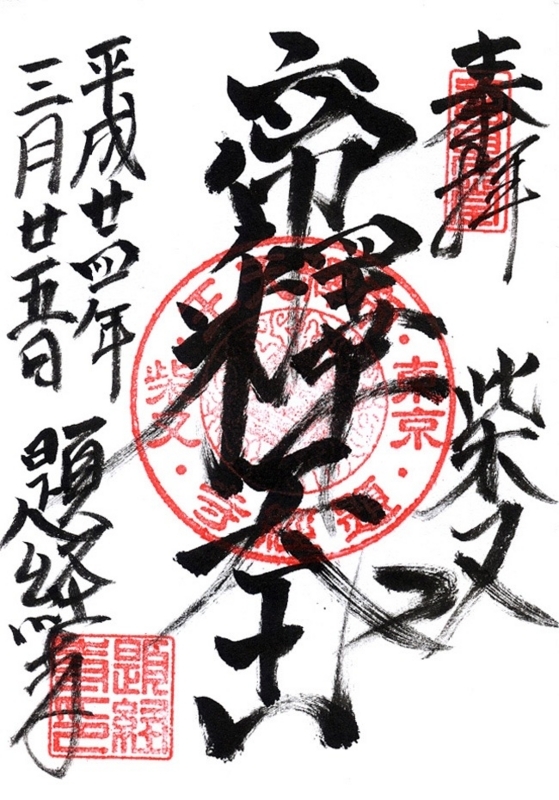 奉拝
柴又
帝釋天王
平成廿四年
三月廿五日
題経寺
東京
柴又
題経寺印